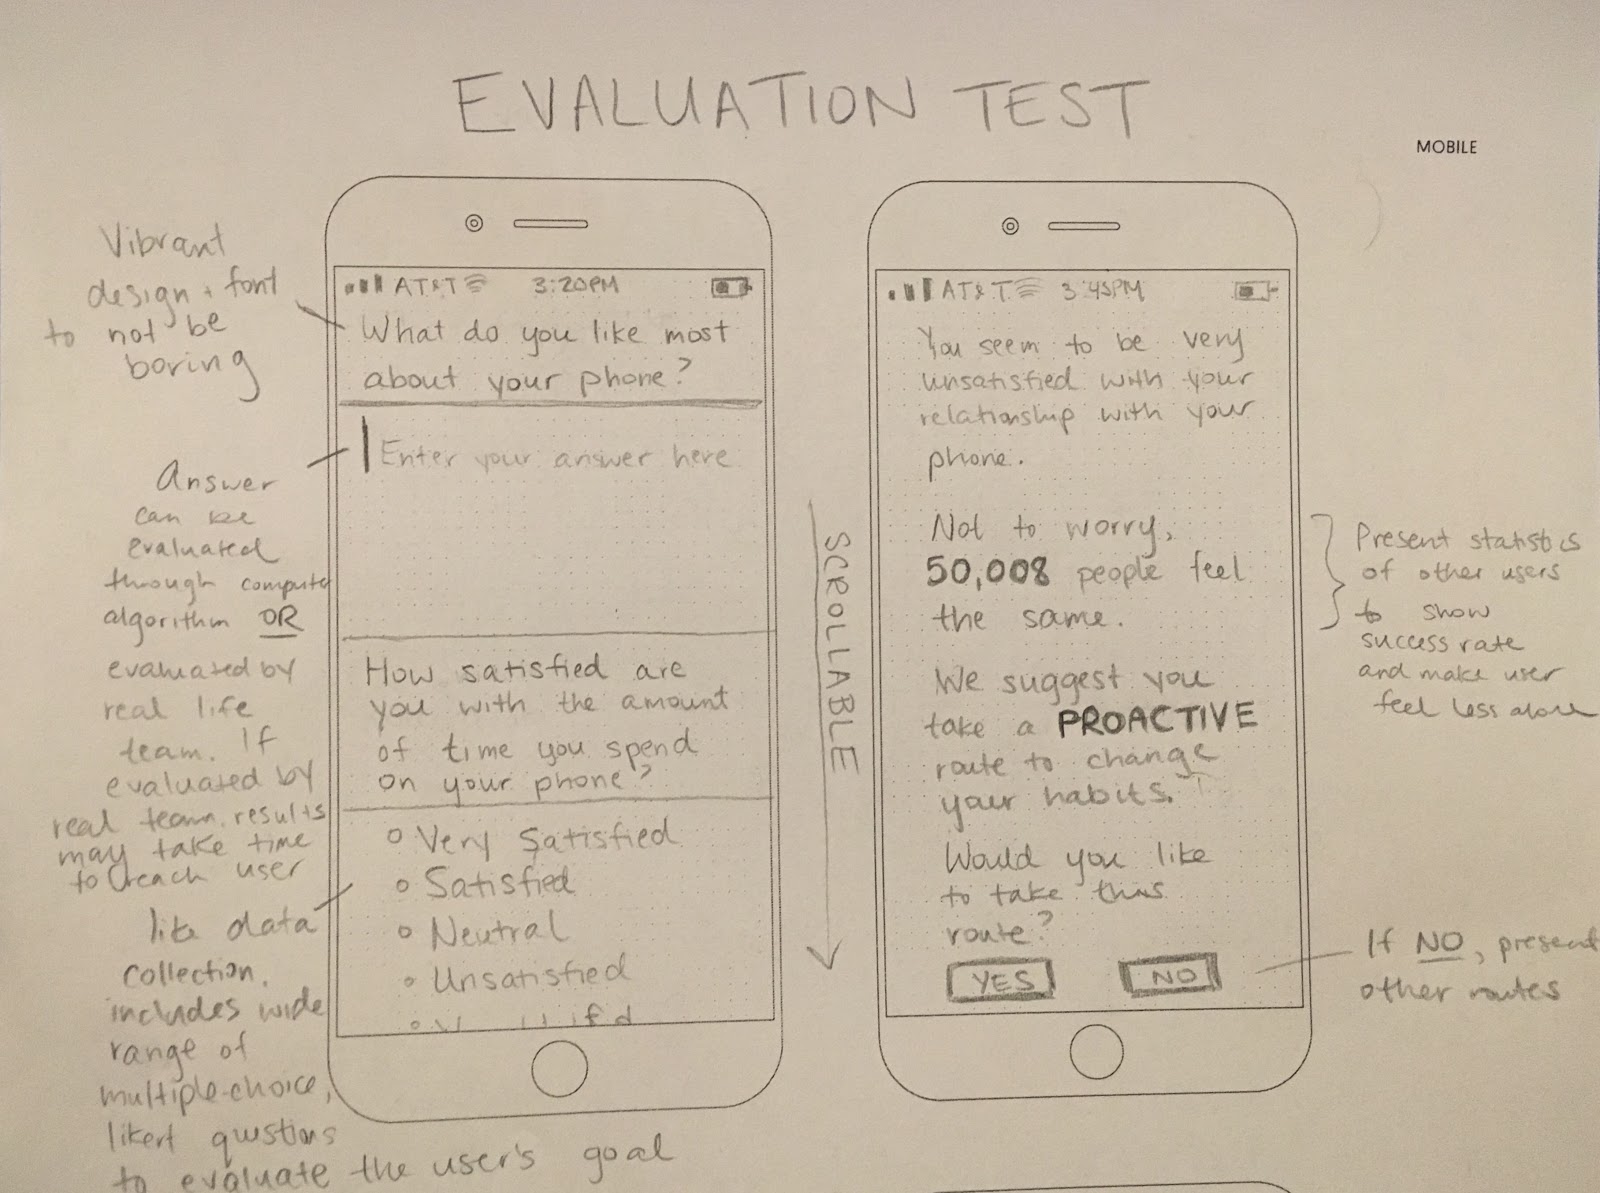 EVALUATION TEST
MOBILE
Vibrant
design + font
to not be
boring
Answer
can be
evaluated
through computer
algorithm OR
evaluated by
real life
team. If
evaluated by
real team, results
may take time
to reach user
like data
collection,
includes wide
range of
multiple-choice,
likert questions
to evaluate the user's goal
AT&T 3:20PM
What do you like most
about your phone?
Enter your answer here
How satisfied are
you with the amount
of time you spend
on your phone?
Very Satisfied
Satisfied
Neutral
Unsatisfied
SCROLLABLE
AT&T 3:45PM
You seem to be very
unsatisfied with your
relationship with your
phone.
Not to worry,
50,008 people feel
the same.
We suggest you
take a PROACTIVE
route to change
your habits.
Would you like
to take this
route?
YES NO
Present statistics
of other users
to show
success rate
and make user
feel less alone
If NO, present
other routes